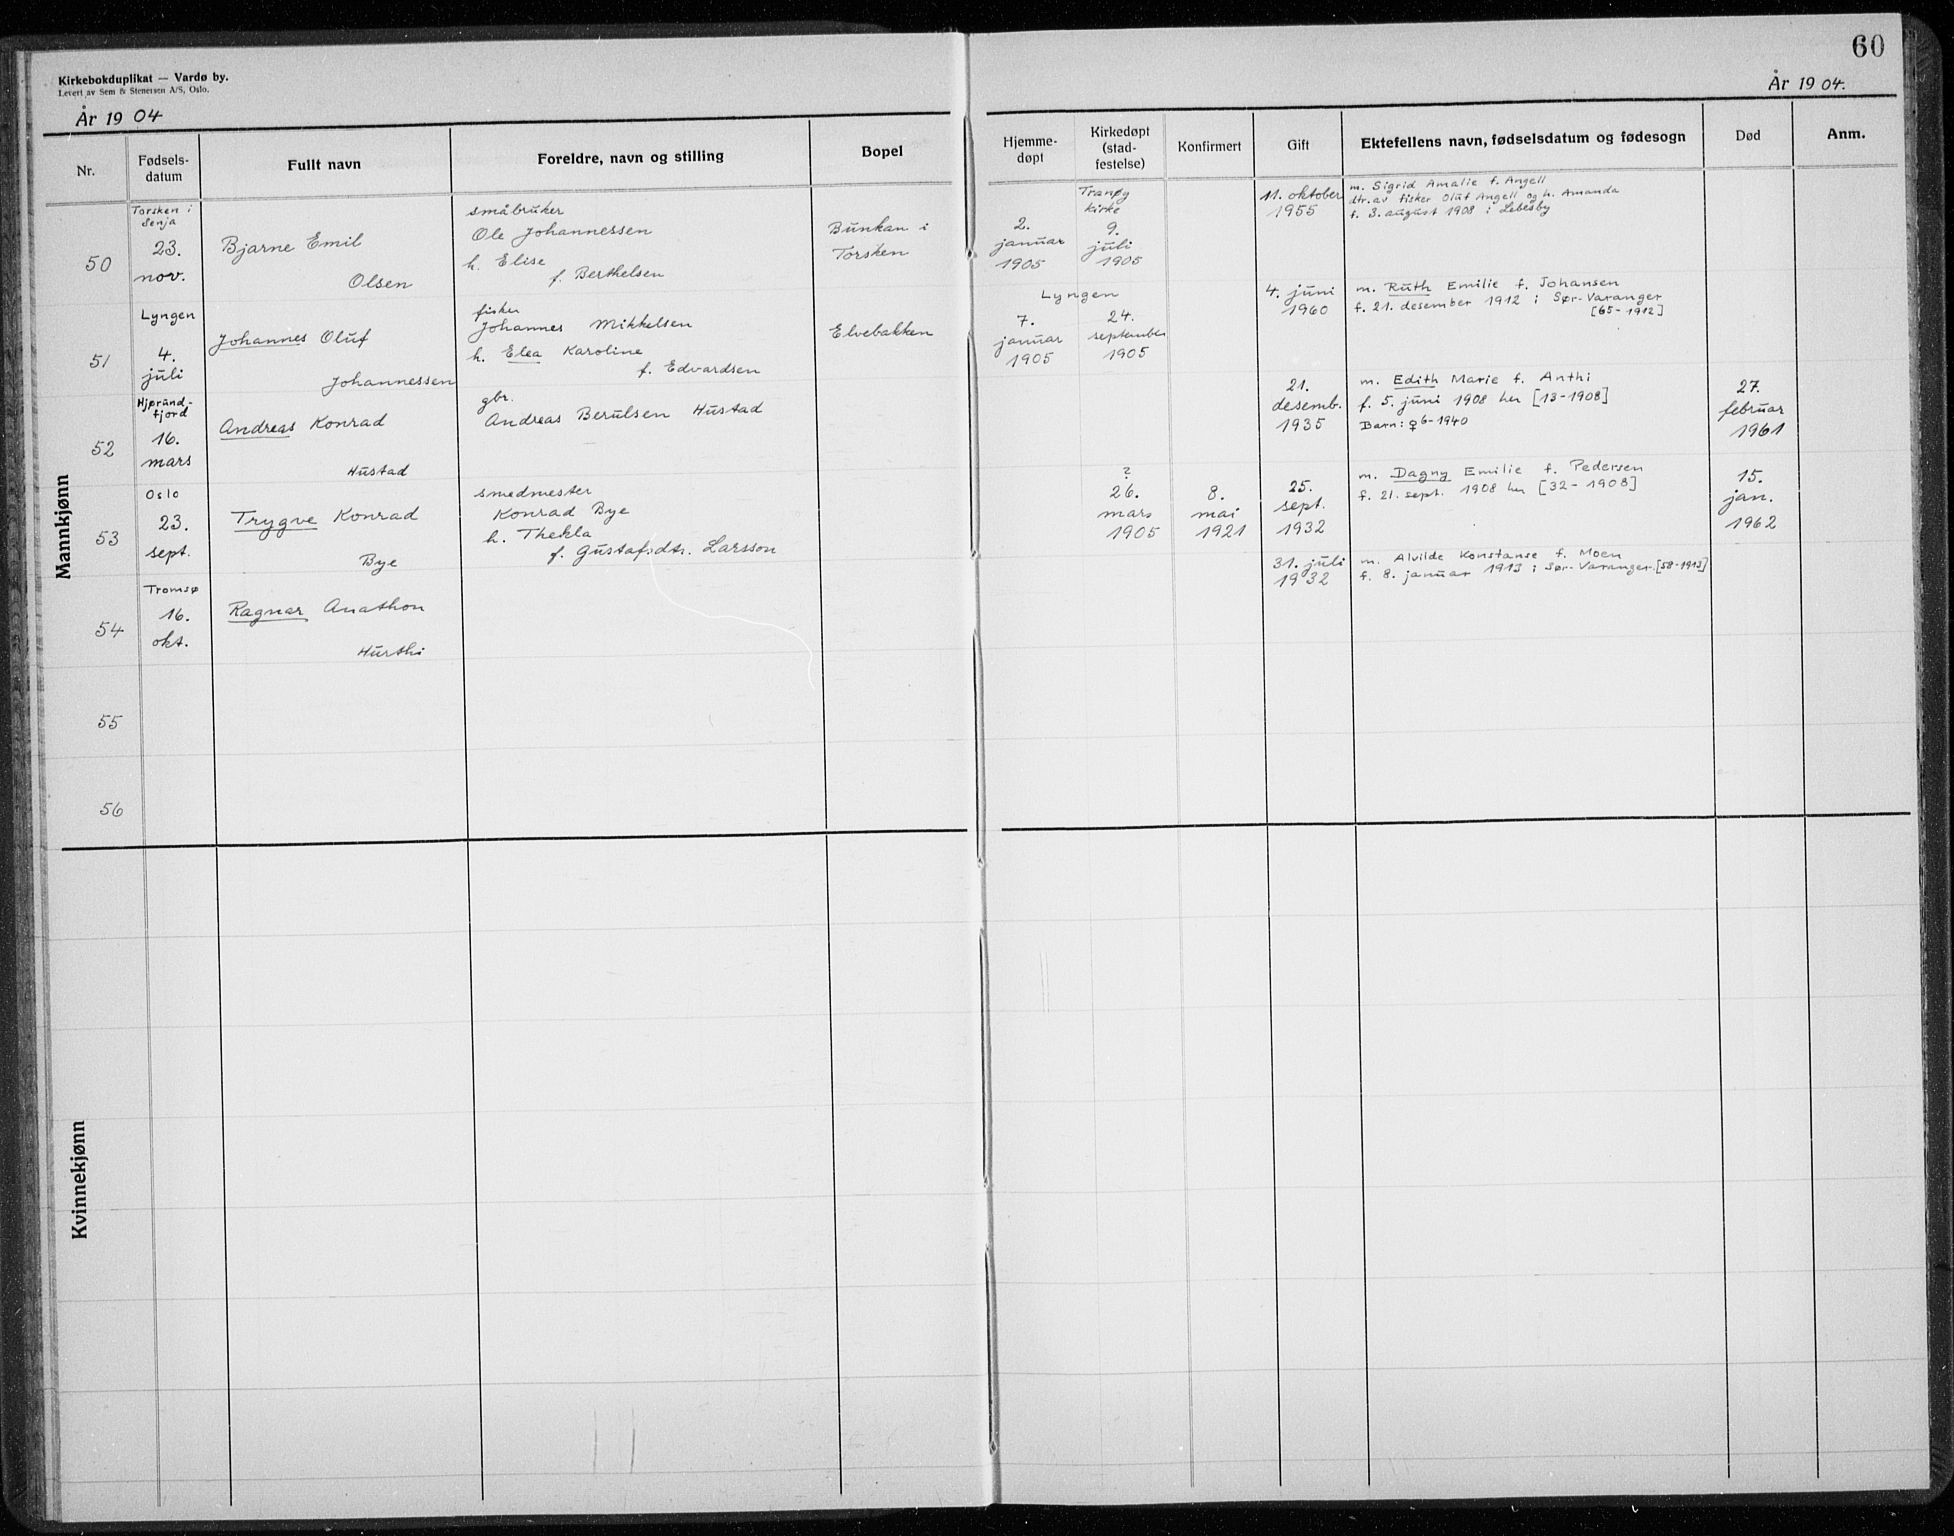 60
Kirkebokduplikat — Vardø by.
Levert av Sem & Stenersen A/S, Oslo.
År 1904
År 1904.
Nr.
Fødsels-
datum
Fullt navn
Foreldre, navn og stilling
Bopel
Hjemme-
døpt
Kirkedøpt
(stad-
festelse)
Konfirmert
Gift
Ektefellens navn, fødselsdatum og fødesogn
Død
Anm.
Mannkjønn
50
Torsken i
Senja
23.
nov.
Bjarne Emil
Olsen
småbruker
Ole Johannessen
h. Elise
f. Berthelsen
Bunkan i
Torsken
2.
januar
1905
Tranøy
kirke
9.
juli
1905
11. oktober
1955
m. Sigrid Amalie f. Angell
dtr. av fisker Oluf Angell og h. Amanda
f. 3. august 1908 i Lebesby
51
Lyngen
4.
juli
Johannes Oluf
Johannessen
fisker
Johannes Mikkelsen
h. Elea Karoline
f. Edvardsen
Elvebakken
Lyngen
7.
januar
1905
24.
september
1905
4. juni
1960
m. Ruth Emilie f. Johansen
f. 21. desember 1912 i Sør-Varanger
[65-1912]
52
Hjørund-
fjord
16.
mars
Andreas Konrad
Hustad
gbr.
Andreas Berulsen Hustad
21.
desemb.
1935
m. Edith Marie f. Anthi
f. 5. juni 1908 her [13-1908]
Barn: ♀ 6-1940
27.
februar
1961
53
Oslo
23.
sept.
Trygve Konrad
Bye
smedmester
Konrad Bye
h. Thekla
f. Gustafsdtr. Larsson
?
26.
mars
1905
8.
mai
1921
25.
sept.
1932
m. Dagny Emilie f. Pedersen
f. 21. sept. 1908 her [32-1908]
15.
jan.
1962
54
Tromsø
16.
okt.
Ragnar Anathon
Hurthi
31. juli
1932
m. Alvilde Konstanse f. Moen
f. 8. januar 1913 i Sør-Varanger. [58-1913]
55
56
Kvinnekjønn